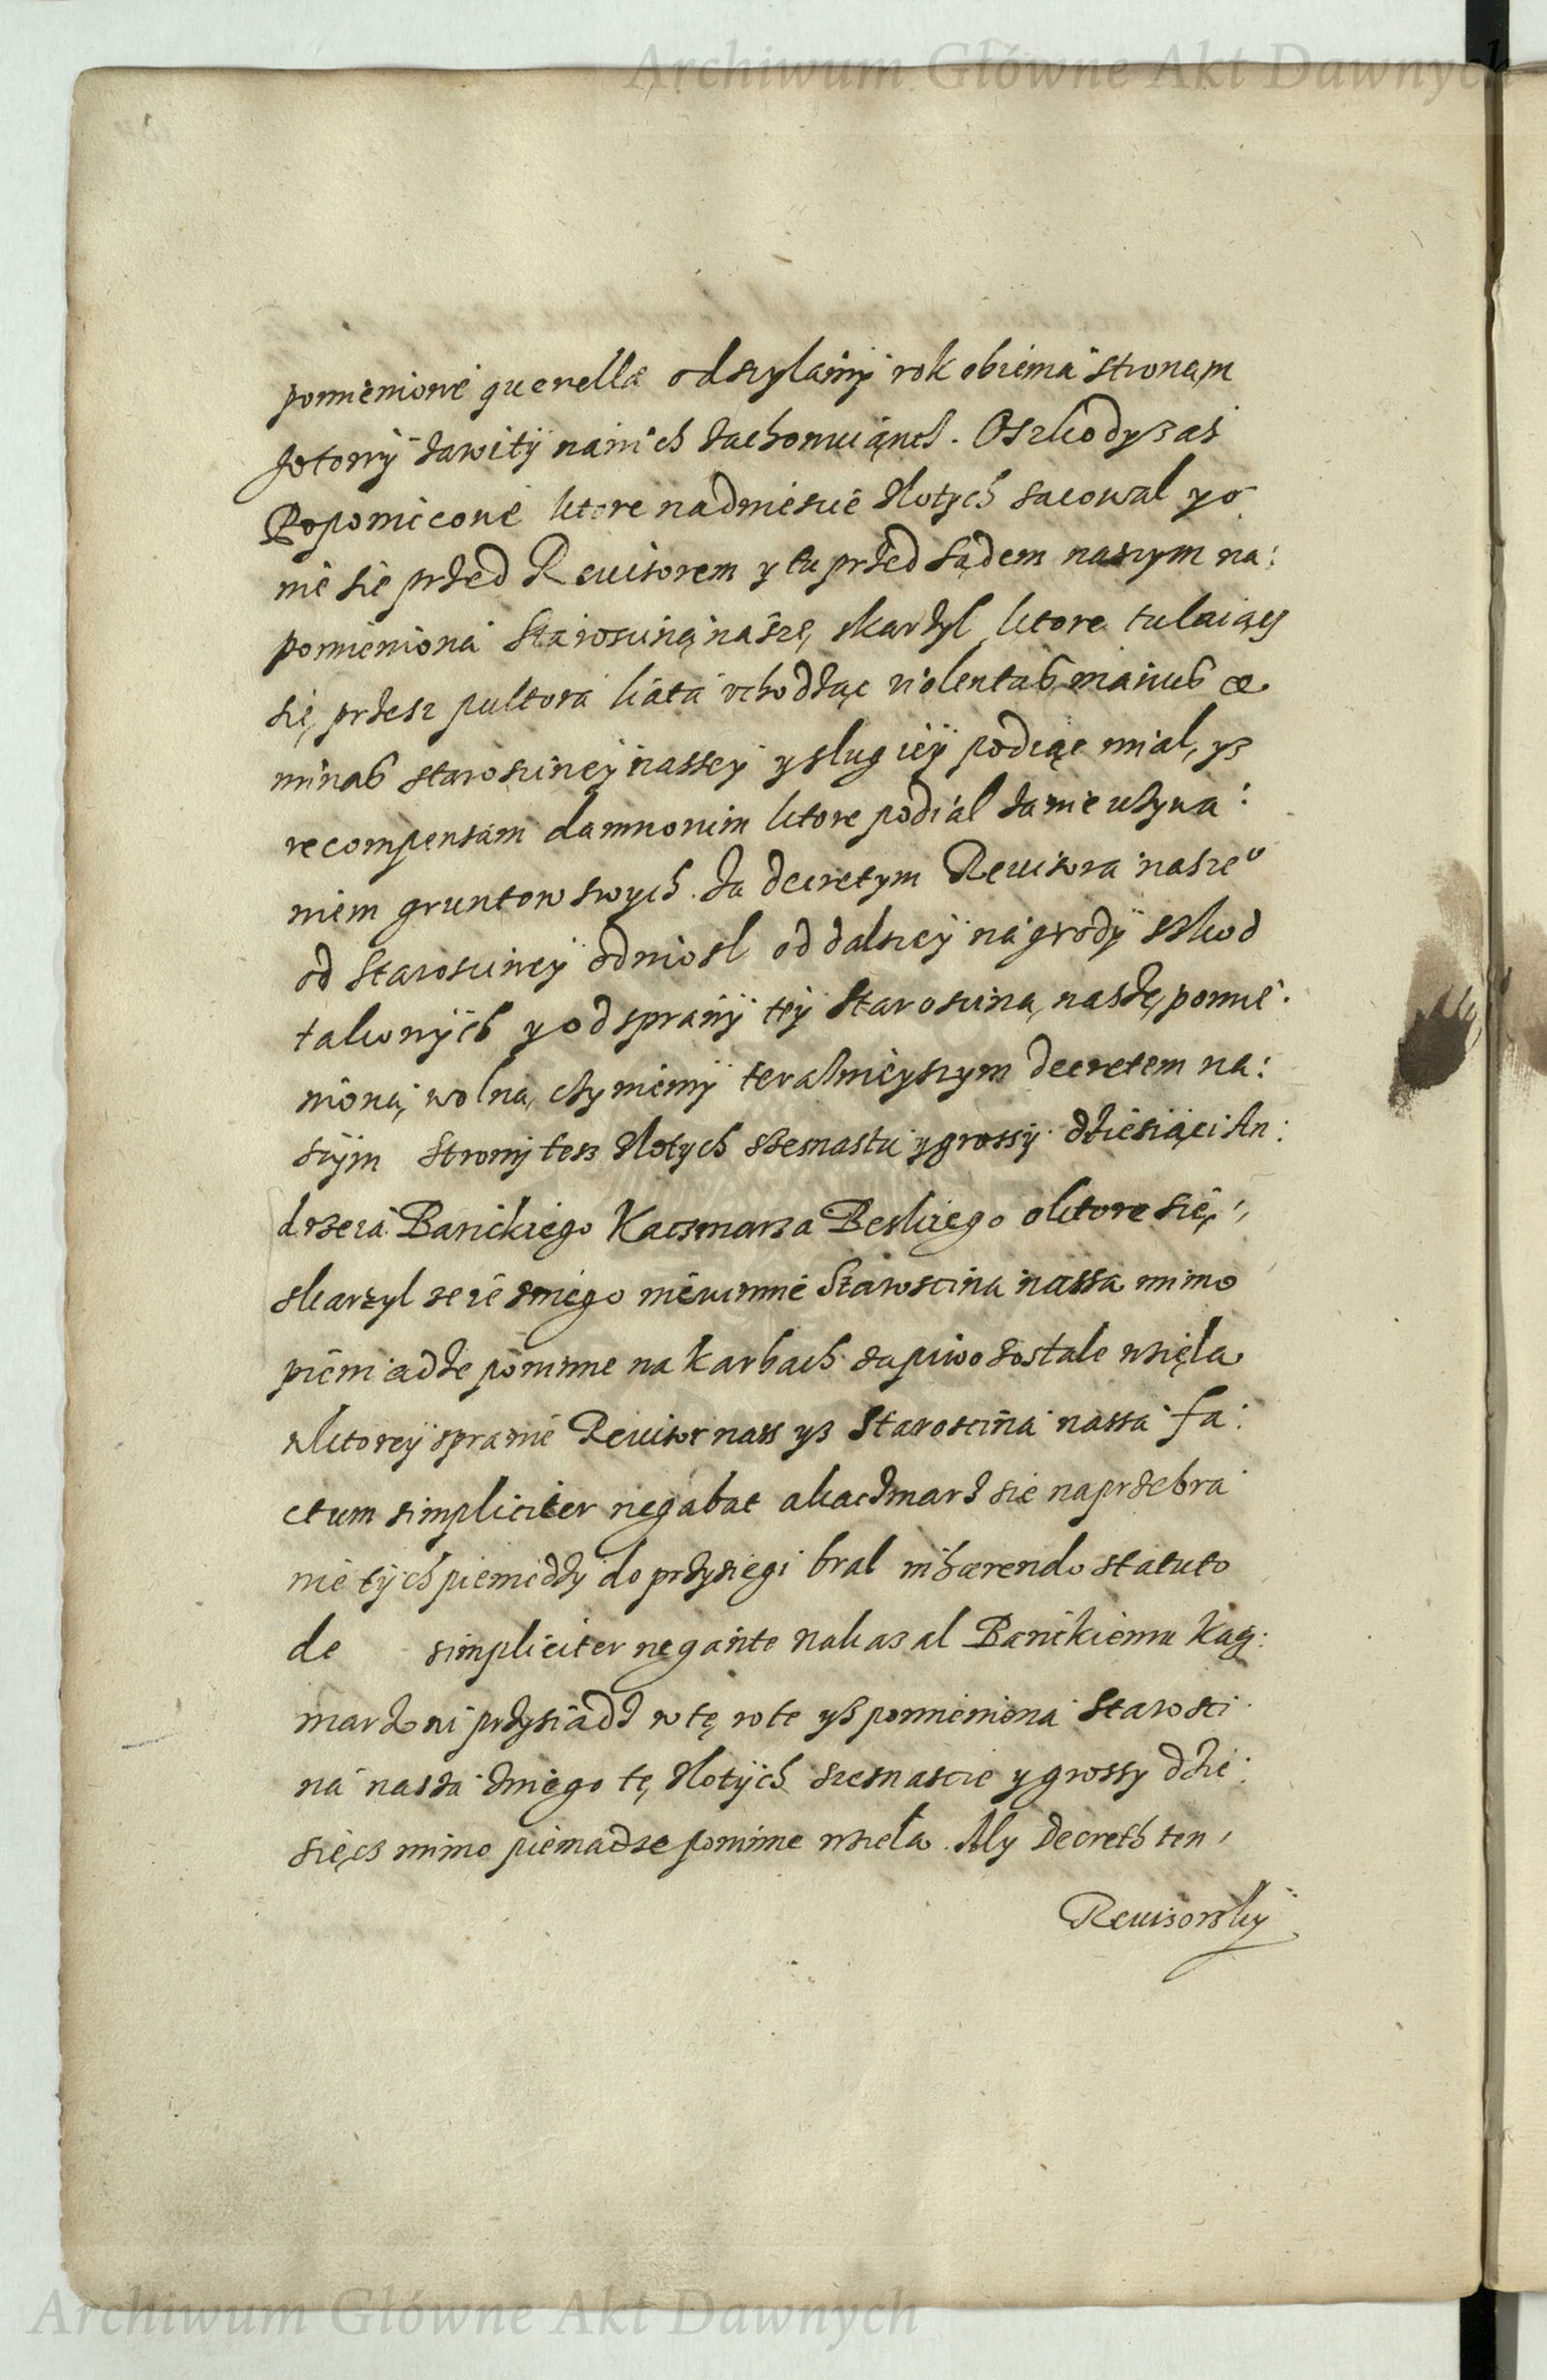 Archiwum Główne Akt Dawnych
pomienionė querellæ odszylamÿ rok obiema stronąm
gotowÿ zawitÿ na nich zachowuiąncż. O szkodÿ zas
Popomiecowe ktore nadwiescie zlotych sacowal y o
nie sie przed Reuisorem y tu przed sądem naszym na:
pomieniona Staroscinę naszę skarżyl ktore tulaiącÿ
się przesz pultora liata vchodząc violentas manus et
minas staroscinej nassej y slug ieÿ podiąc mial, yz
recompensam damnorum ktore podial za nie vzywa:
niem gruntow swych. Za decretym Reuisora naszeo
od Staroscineÿ odniosl od dalszeÿ nagrodÿ szkod
takowÿch y od sprawÿ teÿ Staroscinę naszę pomie:
nioną wolną czyniemÿ teraznieyszym decretem na:
szÿm Stronÿ tesz zlotych szesnastu y grossÿ dziesiąci An:
drzeia Banickiego Kaczmarza Beskiego o ktore się
skarzyl ze ie sniego niewinnie Staroscina nassa mimo
pieniadze powinne na karbach za piwo zostale wzięla
w ktoreÿ sprawie Reuisor nass yz Staroscina nassa fa:
ctum simpliciter negabat a kaczmarz sie na przebra
nie tÿch pieniedzÿ do przysiegi bral inhærendo statuto
de simpliciter negante nakazal Banickiemu Kacz:
marzowi przysiadz w tę rote yż pomieniona Starosci
na nasza zniego tę zlotÿch szesnascie y grossy dzie:
sięcz mimo pieniadze powinne wziela. My Decreth ten
Reuisorskÿ
Archiwum Główne Akt Dawnych